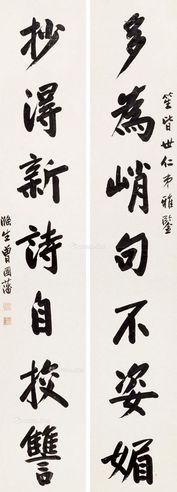 笙皆世仁弟雅鑒
多為峭句不姿媚
抄得新詩自挍讐
滌生曾國藩